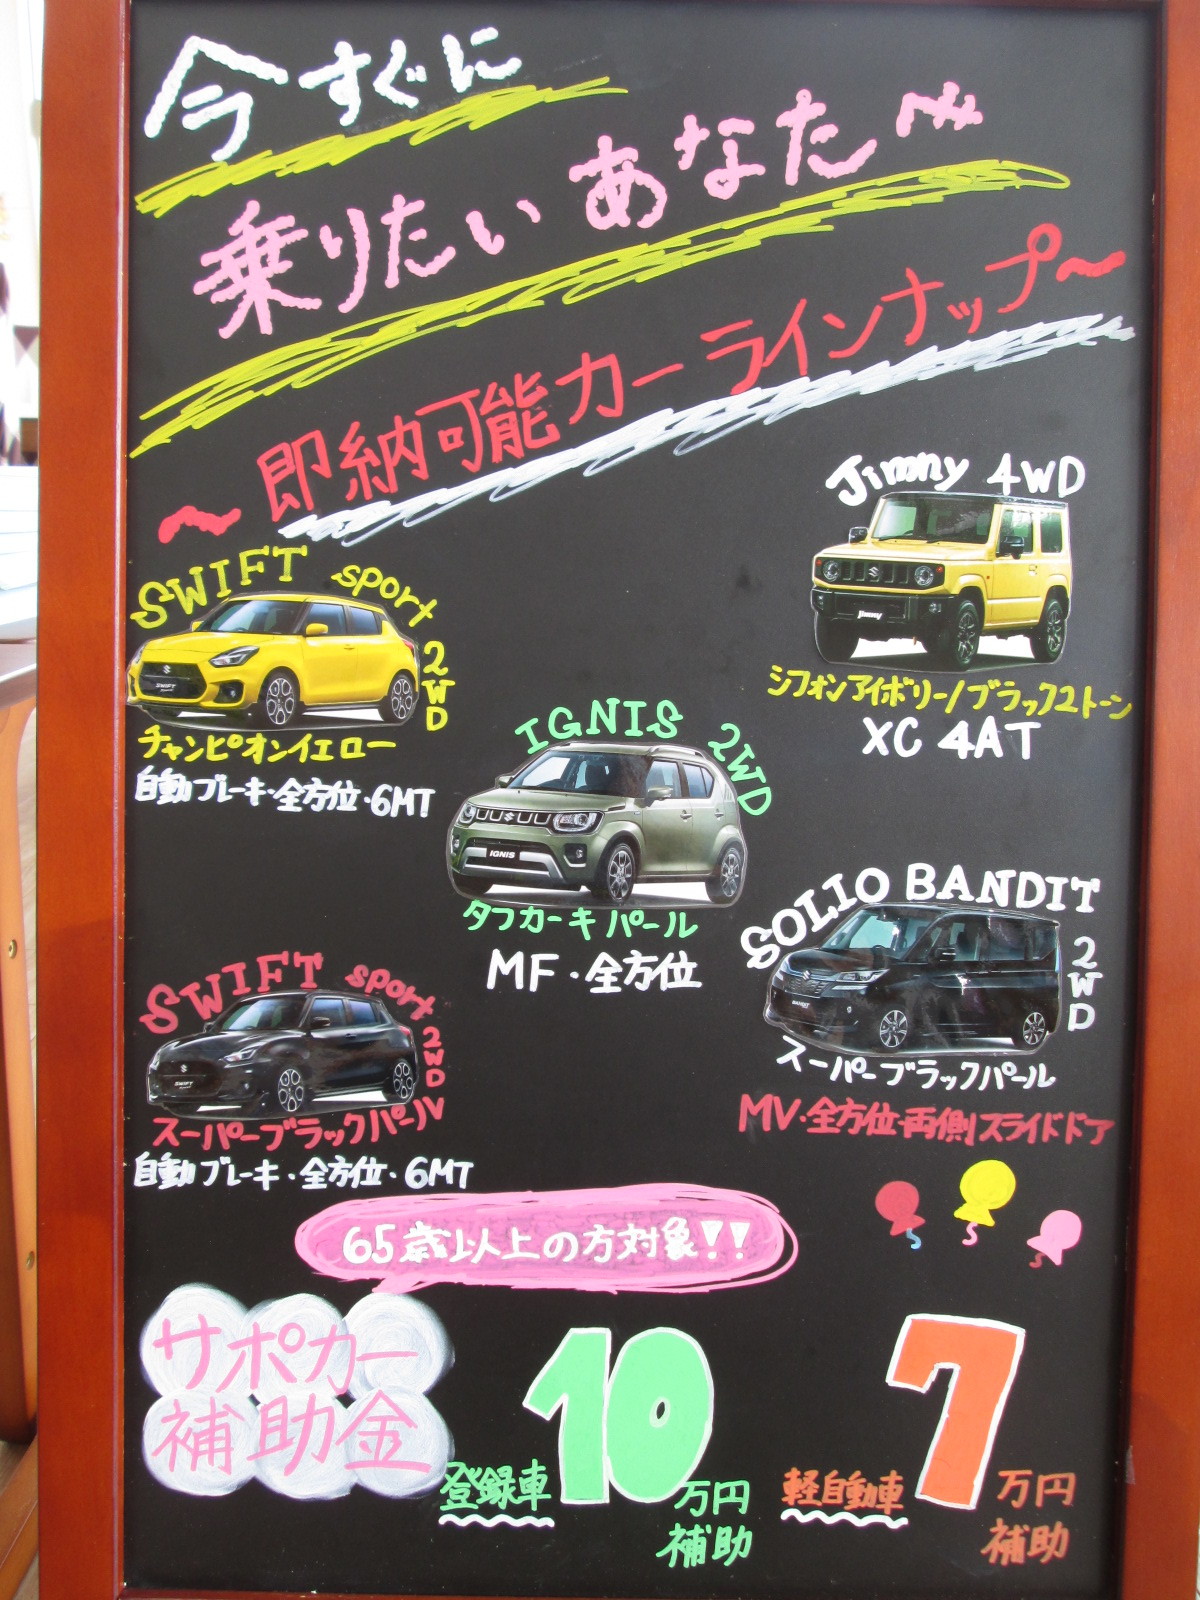 今すぐに
乗りたいあなたへ
～即納可能カーラインナップ～
Jimny 4WD
Jimny
シフォンアイボリー/ブラック2トーン
XC 4AT
SWIFT sport 2WD
SWIFT
チャンピオンイエロー
自動ブレーキ・全方位・6MT
IGNIS 2WD
IGNIS
タフカーキパール
MF・全方位
SOLIO BANDIT 2WD
BANDIT
スーパーブラックパール
MV・全方位・両側スライドドア
SWIFT sport 2WD
SWIFT
スーパーブラックパール
自動ブレーキ・全方位・6MT
65歳以上の方対象!!
サポカー
補助金
登録車10万円
補助
軽自動車7万円
補助